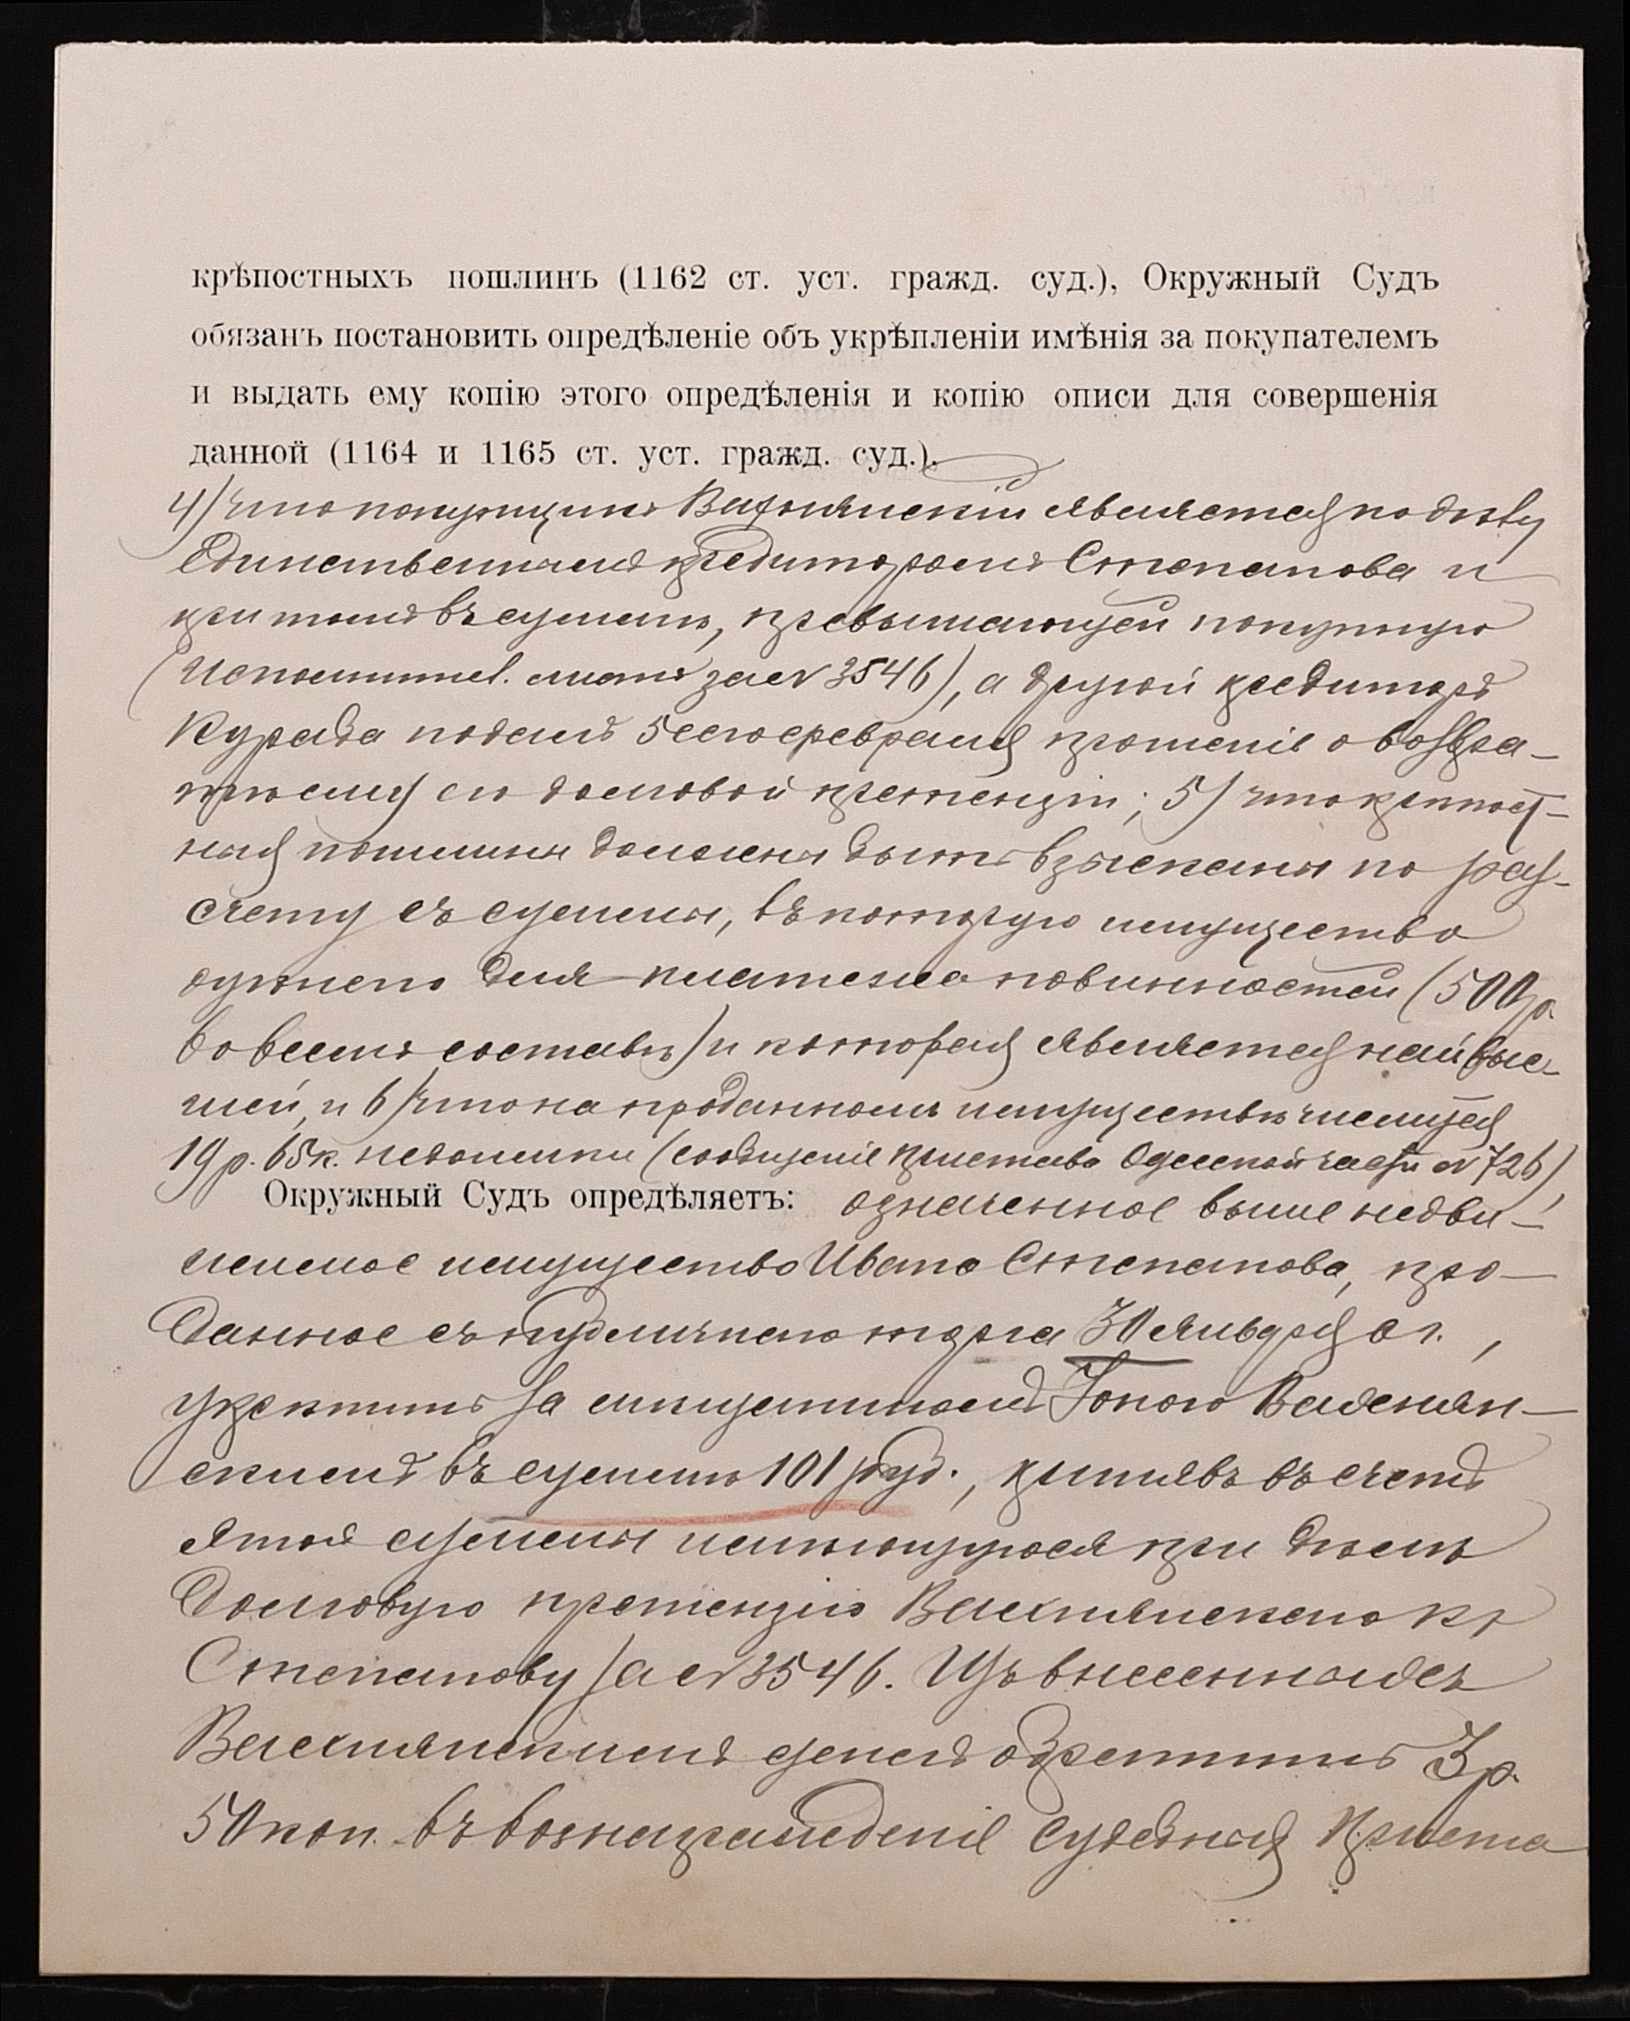 крѣпостныхъ пошлинъ (1162 ст. уст. гражд. суд.), Окружный Судъ
обязанъ постановить опредѣленіе объ укрѣпленіи имѣнія за покупателемъ
и выдать ему копію этого опредѣленія и копію описи для совершенія
данной (1164 и 1165 ст. уст. гражд. суд.).
4) что покупщикъ является по дѣлу
единственнымъ кредиторомъ Степанова и
при томъ въ суммѣ, превышающей покупную
(Исполнител. листъ за № 3546), а другой кредиторъ
подалъ 5сего февраля прошеніе о возвра-
щеніи ему его долговой претензіи; 5) что крѣпост-
ная пошлина должна быть взыскана по раз-
счету съ суммы, въ которую имущество
оцѣнено для платежа повинностей (500 р.
во всемъ составѣ) и которая является наивыс-
шей, и 6) что на проданномъ имуществѣ числится
19 р. 65 к. недоимки (сообщеніе Пристава Одесской части № 726),
Окружный Судъ опредѣляетъ: означенное выше недви-
жимое имущество Ивана Степанова, про-
данное съ публичнаго торга 30 Января с. г.,
укрѣпить за мѣщаниномъ Іоною
въ суммѣ 101 руб., принявъ въ счетъ
этой суммы имѣющуюся при дѣлѣ
долговую претензію къ
Степанову за № 3546. Изъ внесенныхъ
суммъ обратить 3 р.
50 коп. въ вознагражденіе Судебнаго Приста